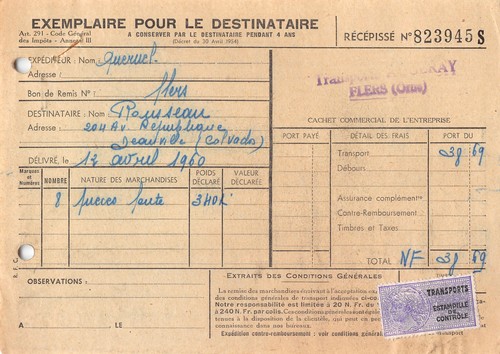 EXEMPLAIRE POUR LE DESTINATAIRE
Art. 291 - Code Général des Impôts - Annexe III
A CONSERVER PAR LE DESTINATAIRE PENDANT 4 ANS
(Décret du 30 Avril 1954)
RÉCÉPISSÉ N° 823945 S
EXPÉDITEUR : Nom : Queruel
Adresse :
Bon de Remis N° : Flers
FLERS (Orne)
CACHET COMMERCIAL DE L'ENTREPRISE
DESTINATAIRE : Nom : Rousseau
Adresse : 204 Av. République
Deauville (Calvados)
DÉLIVRÉ, LE 12 avril 1960
PORT PAYÉ DÉTAIL DES FRAIS PORT DU
Transport 38 69
Débours
Assurance complément
Contre-Remboursement
Timbres et Taxes
TOTAL NF 38 69
Marques et Numéros NOMBRE NATURE DES MARCHANDISES POIDS DÉCLARÉ VALEUR DÉCLARÉE
8 340 K
OBSERVATIONS :
A LE
Extraits des Conditions Générales
La remise des marchandises entraînant l'acceptation
des conditions générales de transport indiquées
Notre responsabilité est limitée à 20 N. Fr.
à 240 N. Fr. par colis. Ces conditions générales
tentions à la disposition de la clientèle, qui peut en
connaissance dans nos bureaux.
Expédition contre-remboursement : voir conditions
TRANSPORTS
ESTAMPILLE DE CONTRÔLE